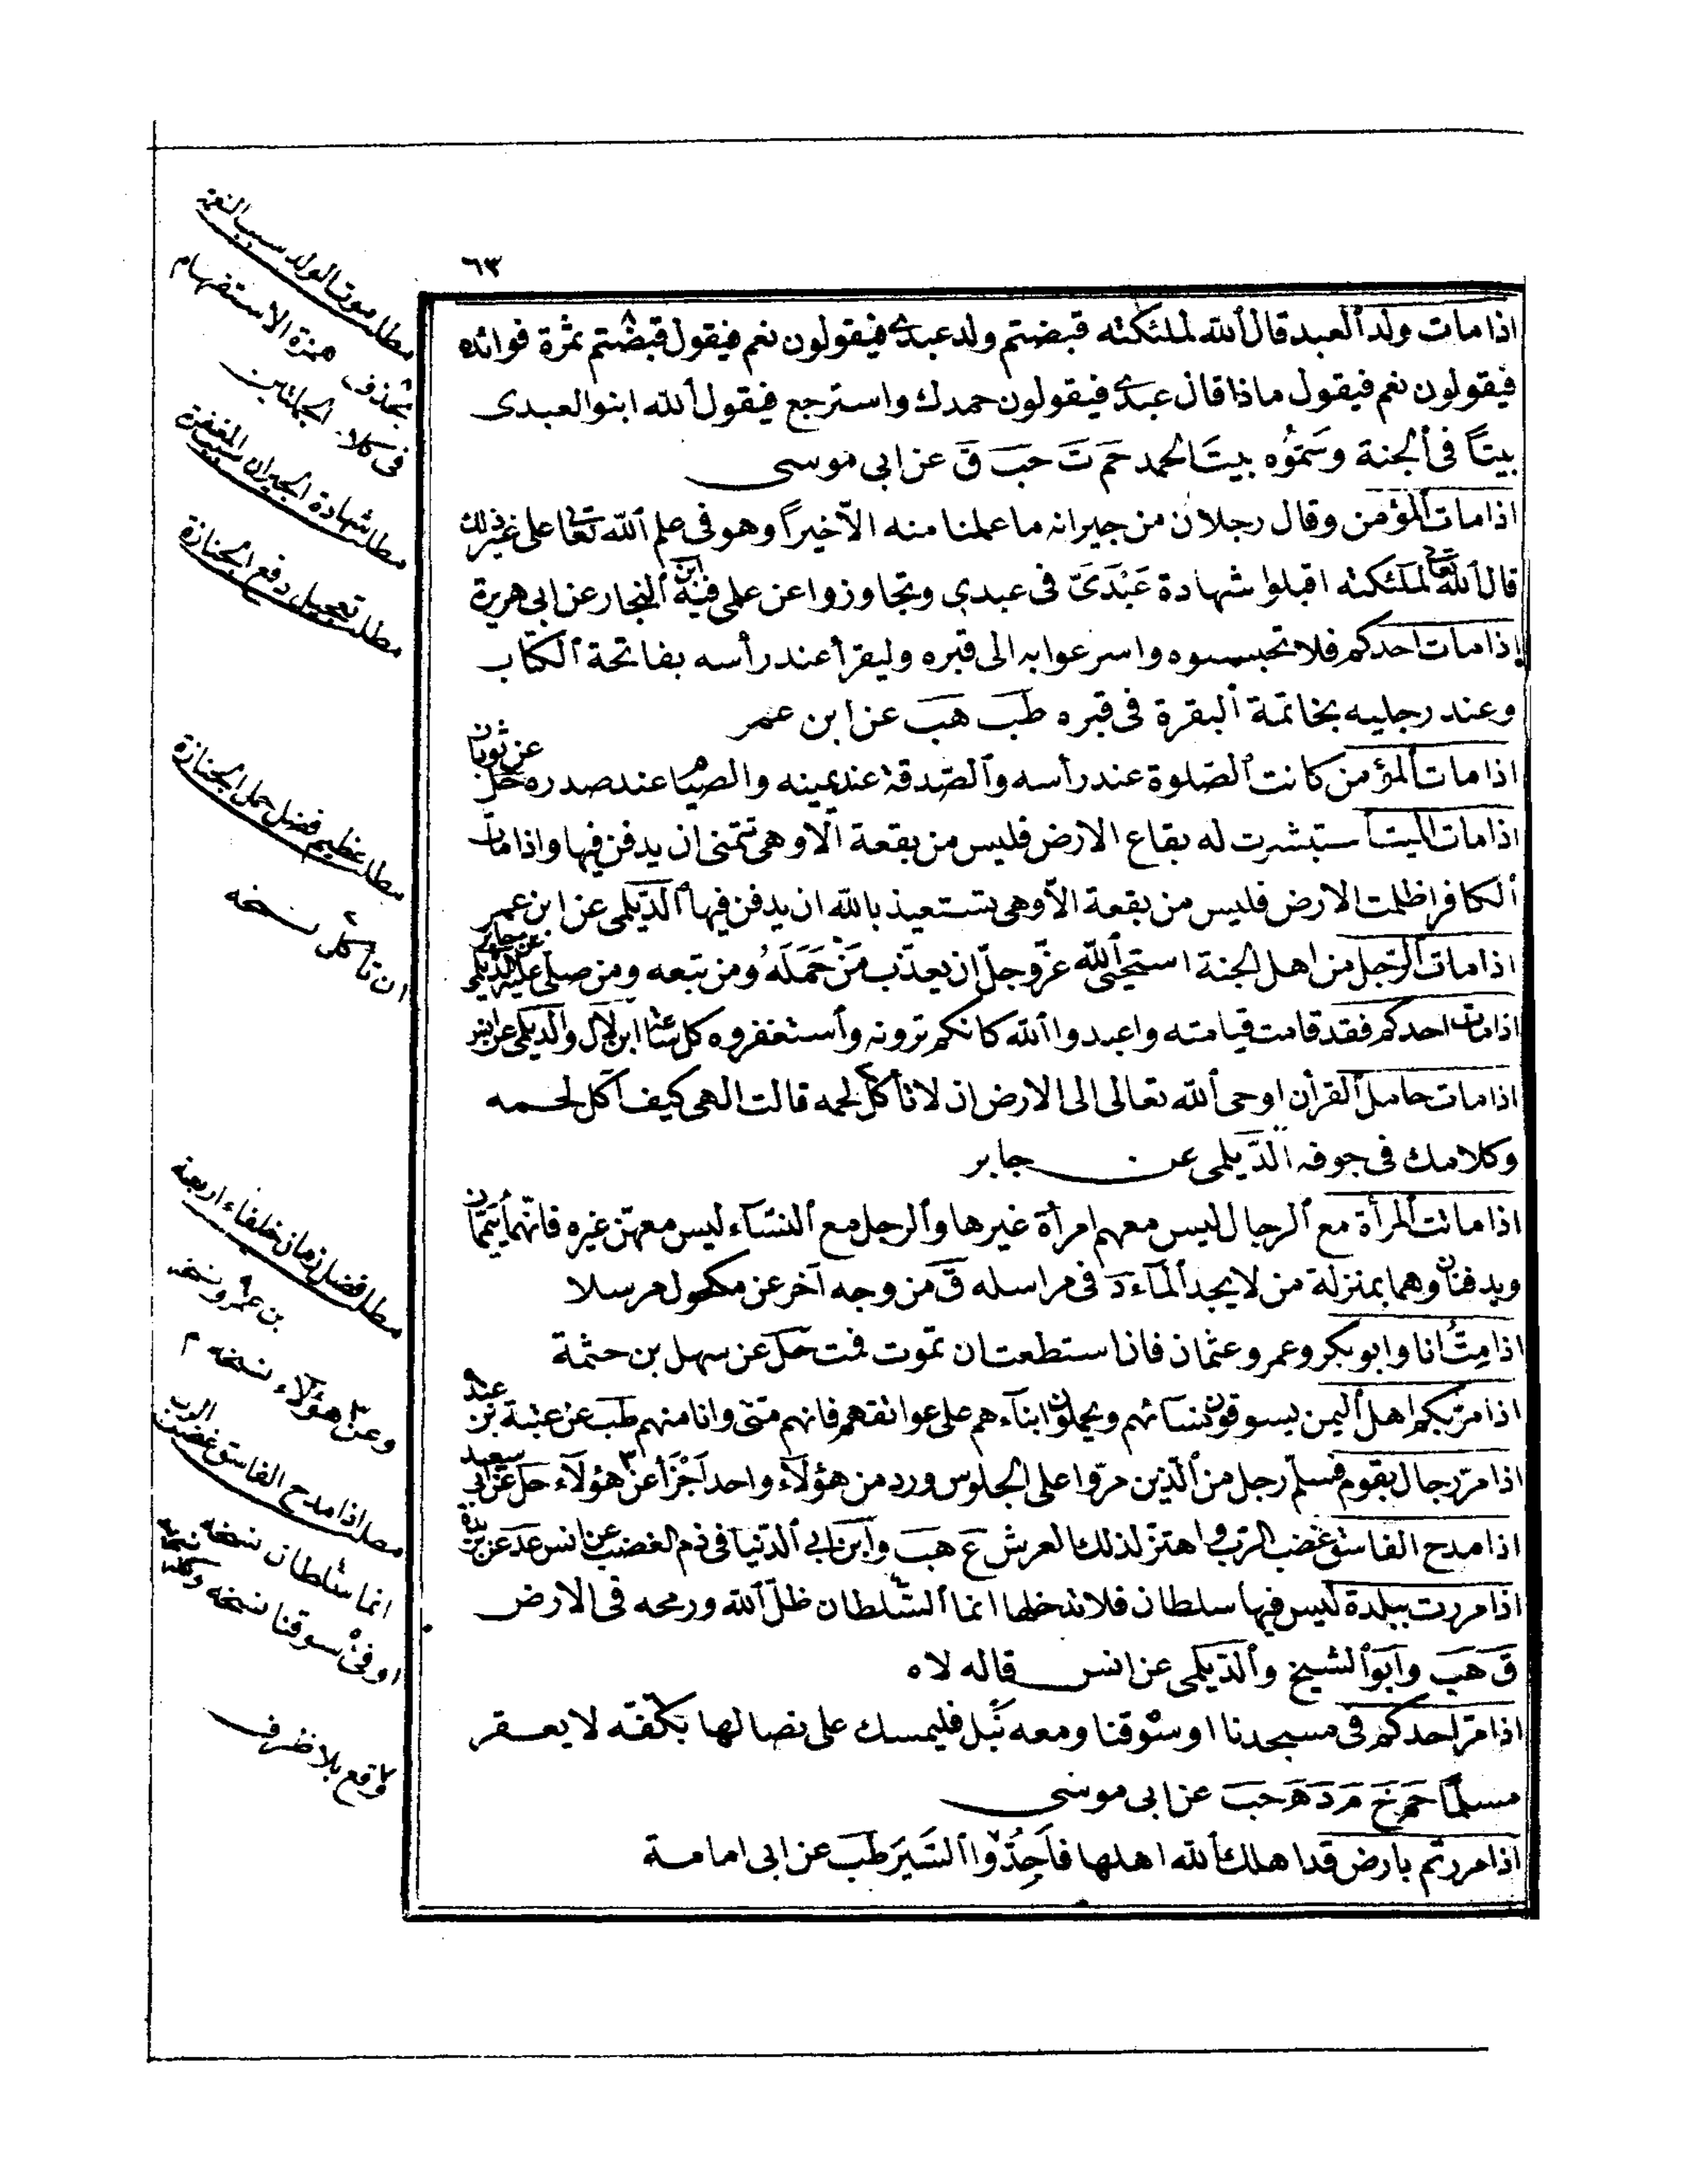 ٦٣
اذا مات ولد العبد قال الله لملئكته قبضتم ولد عبدى فيقولون نعم فيقول قبضتم ثمرة فوائده
فيقولون نعم فيقول ماذا قال عبدى فيقولون حمدك واسترجع فيقول الله ابنوا لعبدى
بيتًا فى الجنة وسَمّوُه بيتَ الحمد حَم تَ حبَ قَ عن ابى موسى
اذا مات المؤمن وقال رجلان من جيرانه ما علمنا منه الاّ خيراً وهو فى علم الله تعا على غير ذلك
قال الله تعا لملئكته اقبلوا شهادة عَبْدَىَّ فى عبدى وتجاوزوا عن علمى فيه ابن النجار عن ابى هريرة
إذا مات احدكم فلا تحبسوه واسرعوا به الى قبره وليقرأ عند رأسه بفاتحة الكتاب
وعند رجليه بخاتمة البقرة فى قبره طبَ هبَ عن ابن عمر
اذا مات المؤمن كانت الصّلوة عند رأسه والصّدقة عند يمينه والصيام عند صدره حَل عن ثوبان
اذا مات الميت استبشرت له بقاع الارض فليس من بقعة الاّ وهى تتمنى ان يدفن فيها واذا مات
الكافر اظلمت الارض فليس من بقعة الاّ وهى تستعيذ بالله ان يدفن فيها الدّيلمى عن ابن عمر
اذا مات الرّجل من اهل الجنة استحيى الله عزّ وجلّ ان يعذّب مَنْ حَمَلَهُ ومن تبعه ومن صلّى عليه الديلمى عن جابر
اذا مات احدكم فقد قامت قيامته واعبدوا الله كانكم ترونه واستغفروه كل ساعة ابن لال والديلمى عن انس
اذا مات حامل القرأن اوحى الله تعالى الى الارض ان لا تأكل لحمه قالت الهى كيف آكل لحمه
وكلامك فى جوفه الدّيلمى عن جابر
اذا ماتت المرأة مع الرجال ليس معهم امرأة غيرها والرجل مع النسّاء ليس معهنّ غيره فانّهما يتيمّمان
ويدفنان وهما بمنزلة من لا يجد المآء دَ فى مراسله قَ من وجه آخر عن مكحول مرسلا
اذا مِتُّ انا وابو بكر وعمر وعثمان فان استطعت ان تموت فمت حَل عن سهل بن حثمة
اذا مرّ بكم اهل اليمن يسوقون نسائهم ويحملون ابناءهم على عواتقهم فانهم منّى وانا منهم طبَ عن عتبة بن عبد
اذا مرّ رجال بقوم فسلّم رجل من الّذين مرّوا على الجلوس ورد من هؤلاء واحد اَجْزَأ عن هؤلاء حَل عن ابى سعيد
اذا مدح الفاسق غضب الرّب واهتزّ لذلك العرش عَ هبَ وابن ابى الدّنيا فى ذم الغضب عن انس عَد عن بريدة
اذا مررت ببلدة ليس فيها سلطان فلا تدخلها انما السّلطان ظلّ الله ورمحه فى الارض
قَ هَبَ وابَو الشيخ والدّيلمى عن انس قاله لاه
اذا مرّ احدكم فى مسجدنا او سُوقنا ومعه نَبْل فليمسك على نصالها بكفّه لا يعقر
مسلمًا حَم خَ مَ دَ هَ حَبَ عن ابى موسى
اذا مررتم بارض قد اهلك الله اهلها فاَجِدّوا السَّيَر طَب عن ابى امامة
مطلب موت الولد سبب النعمة
بحذف همزة الاستفهام
فى كلا الجملتين
مطلب شهادة الجيران سبب المغفرة
مطلب تعجيل دفع الجنازة
مطلب عظيم فضل حمل الجنازة
ان تأكل نسخه
مطلب فضل زمان خلفاء اربعة
بن عمرو نسخه
وعن هؤلاء نسخه م
مطلب اذا مدح الفاسق غضب الرب
انما سلطان نسخه
او فى سوقنا نسخه
واقع بلا ظرف